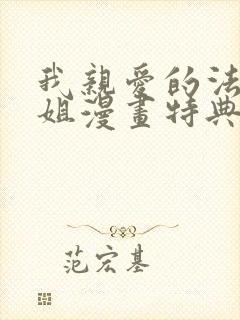 我親愛的法
姐漫畫特典
范宏基